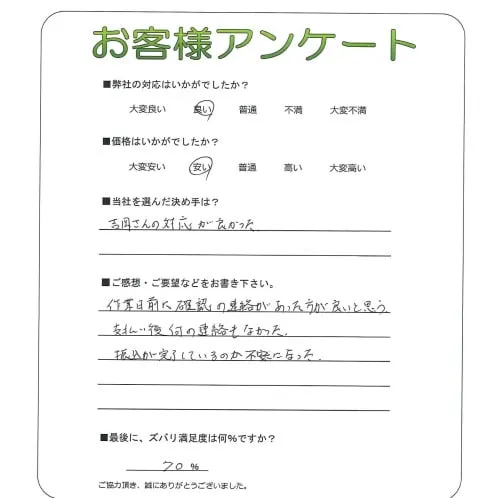 お客様アンケート
■弊社の対応はいかがでしたか？
大変良い 良い 普通 不満 大変不満
■価格はいかがでしたか？
大変安い 安い 普通 高い 大変高い
■当社を選んだ決め手は？
吉岡さんの対応が良かった
■ご感想・ご要望などをお書き下さい。
作業日前に確認の連絡があった方が良いと思う
支払い後何の連絡もなかった。
振込が完了しているのか不安になった。
■最後に、ズバリ満足度は何％ですか？
70 %
ご協力頂き、誠にありがとうございました。